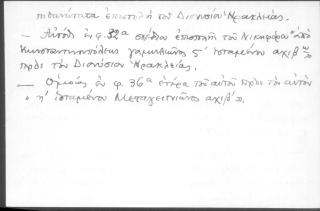 πιθανώτατα ἐπιστολὴ τοῦ Διονυσίου Ἡρακλείας.
— Αὐτόθι ἐν φ. 32α σχέδιον ἐπιστολῆς τοῦ Νικηφόρου "ἀπὸ
Κωνσταντινουπόλεως γαμηλιῶνος ς´ ἱσταμένου αχιβ´ῳ"
πρὸς τὸν Διονύσιον Ἡρακλείας.
— Ὁμοίως ἐν φ. 36α ἑτέρα τοῦ αὐτοῦ πρὸς τὸν αὐτὸν
"η´ ἱσταμένου Μεταγειτνιῶνος αχιβ´".